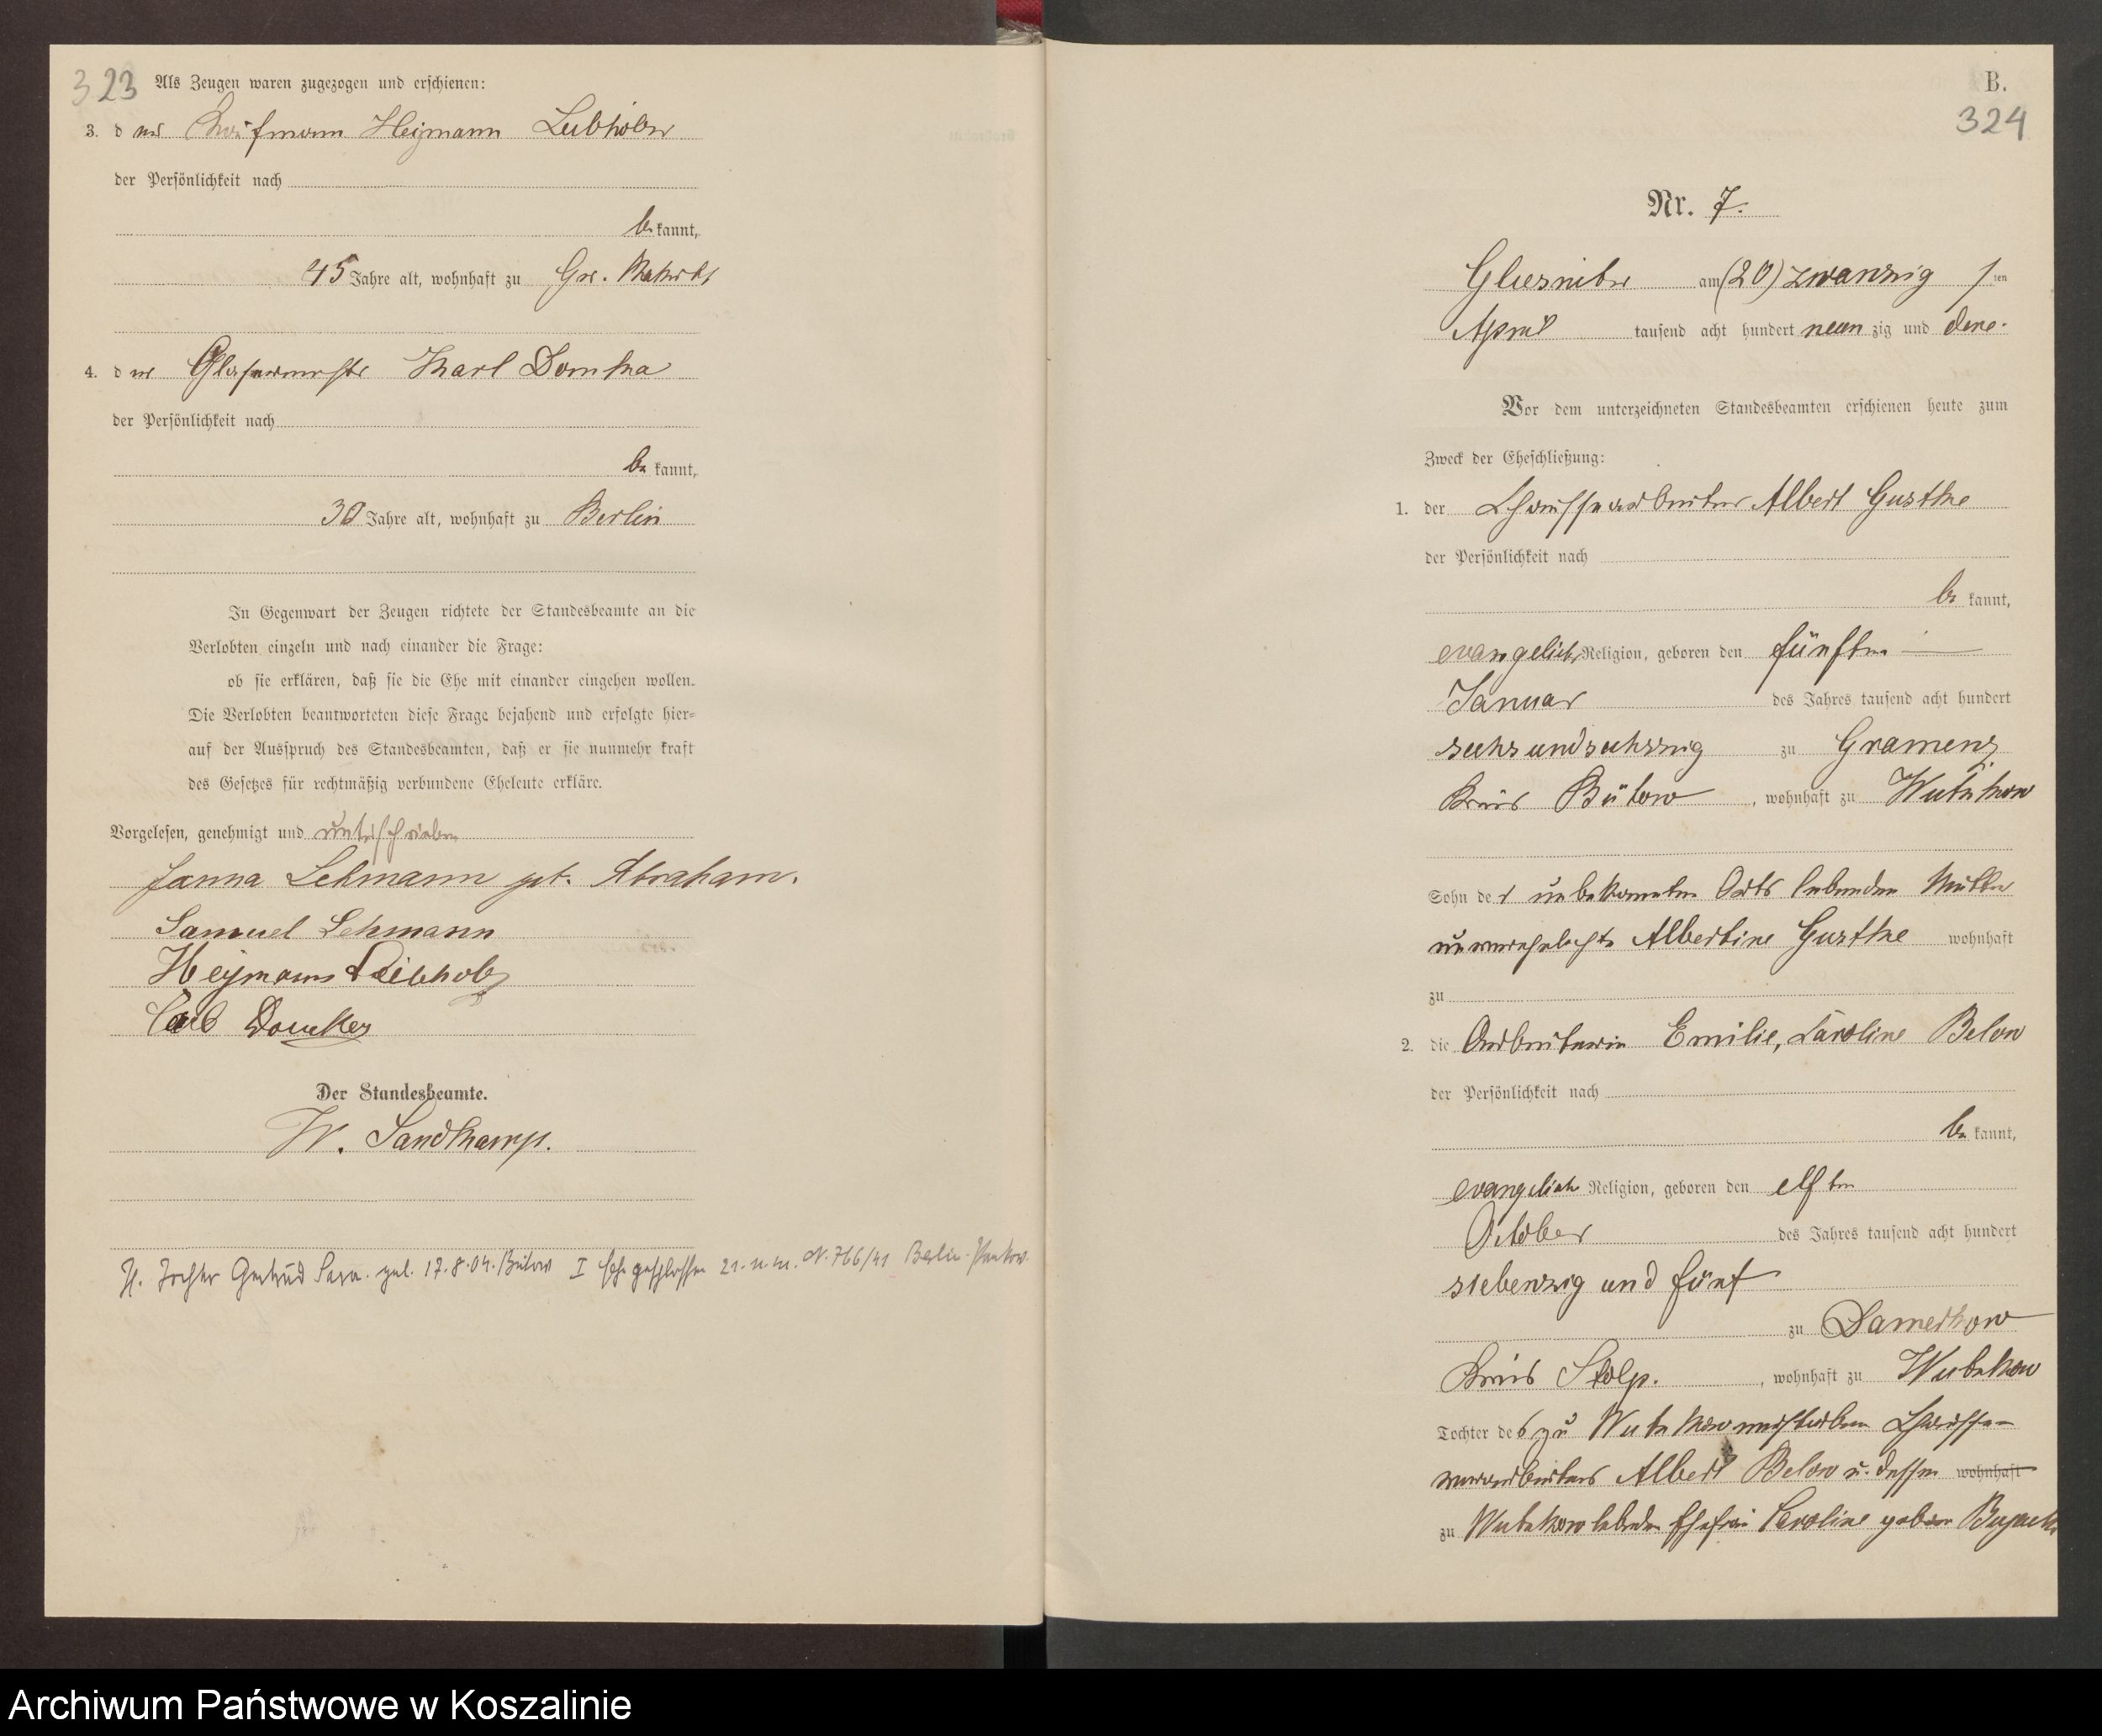 323 Als Zeugen waren zugezogen und erschienen:
3. der Kaufmann Heymann Leibholz
der Persönlichkeit nach
be kannt,
45 Jahre alt, wohnhaft zu Gr.
4. der Glasermeister Karl
der Persönlichkeit nach
be kannt,
30 Jahre alt, wohnhaft zu Berlin
In Gegenwart der Zeugen richtete der Standesbeamte an die
Verlobten einzeln und nach einander die Frage:
ob sie erklären, daß sie die Ehe mit einander eingehen wollen.
Die Verlobten beantworteten diese Frage bejahend und erfolgte hier=
auf der Ausspruch des Standesbeamten, daß er sie nunmehr kraft
des Gesetzes für rechtmäßig verbundene Eheleute erkläre.
Vorgelesen, genehmigt und unterschrieben
Lehmann geb. Abraham.
Samuel Lehmann
Heymann Leibholz
Der Standesbeamte.
W. Sandkamp.
Tochter Gertrud Sara. geb. 17.8.04. Bütow I Ehe geschlossen N. 766/41 Berlin-Pankow
B.
324
Nr. 7.
Gliesnitz am (20) zwanzig ten
April tausend acht hundert neun zig und
Vor dem unterzeichneten Standesbeamten erschienen heute zum
Zweck der Eheschließung:
1. der Albert Gustke
der Persönlichkeit nach
be kannt,
evangelich Religion, geboren den fünften
Januar des Jahres tausend acht hundert
sechsundsechszig zu Gramenz
Kreis Bütow, wohnhaft zu Wutzkow
Sohn der unbekannten Orts lebenden Mutter
unverehelichte Albertine Gustke wohnhaft
zu
2. die Arbeiterin Emilie, Caroline Below
der Persönlichkeit nach
be kannt,
evangelich Religion, geboren den elften
October des Jahres tausend acht hundert
siebenzig und fünf
zu Damerkow
Kreis Stolp., wohnhaft zu Wutzkow
Tochter des zu Wutzkow verstorbenen Chaussee-
Albert Below u. dessen wohnhaft
zu Wutzkow lebenden Ehefrau Caroline geboren
Archiwum Państwowe w Koszalinie